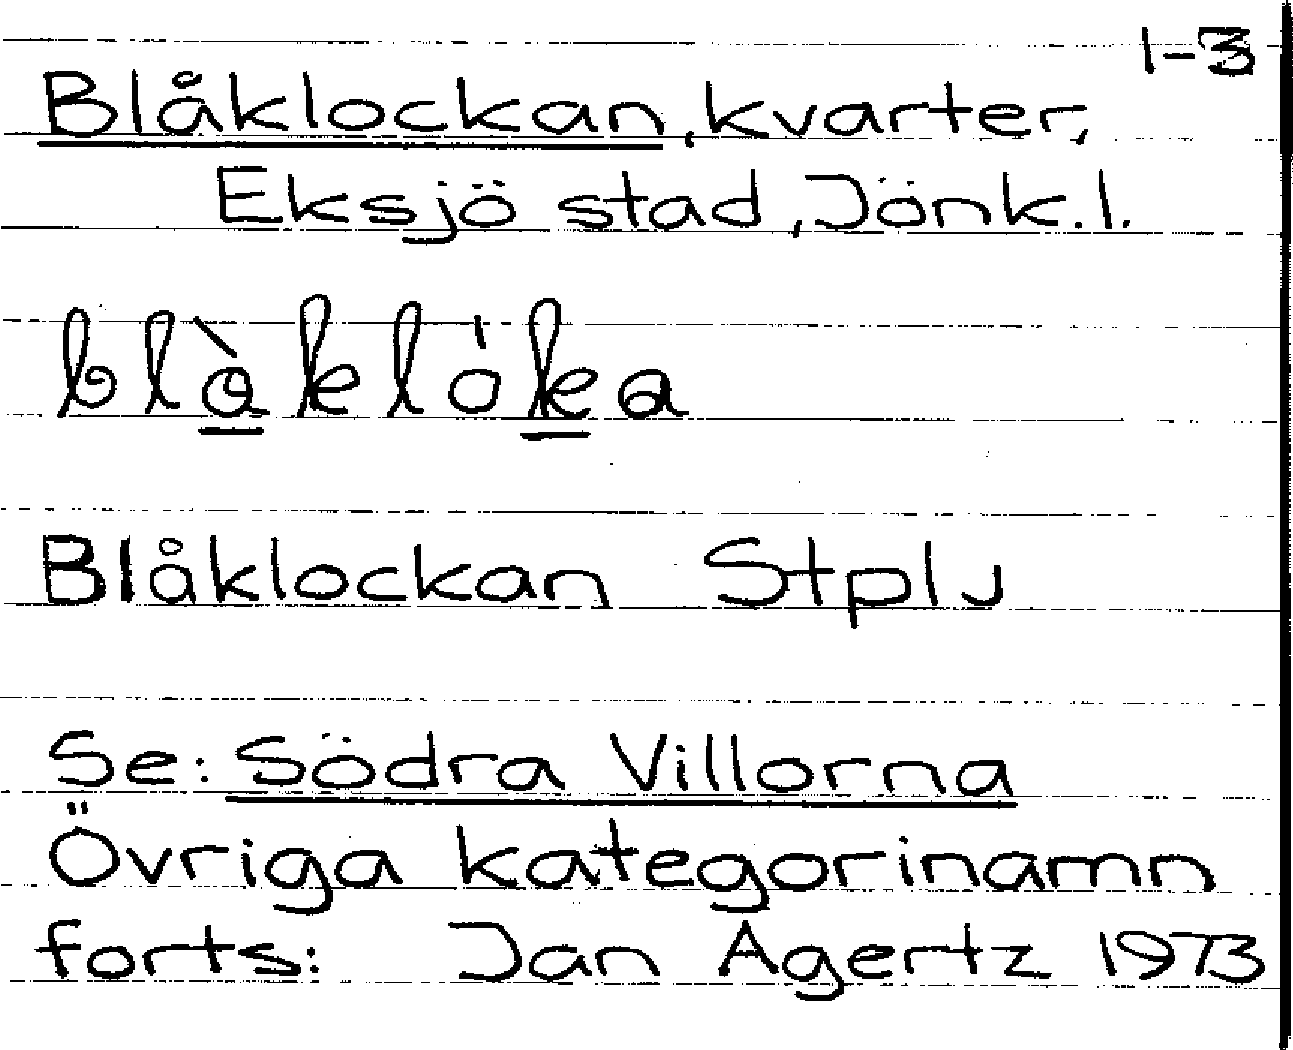 1-3
Blåklockan, kvarter,
Eksjö stad, Jönk. l.
blà̲klók̲a
Blåklockan Stplj
Se: Södra Villorna
Övriga kategorinamn
forts: Jan Agertz 1973